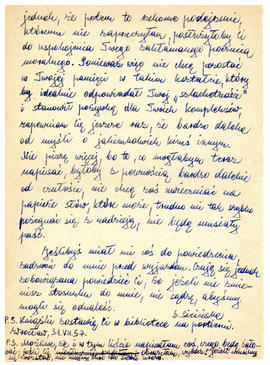 jednak, że potem to rzekome podejrzenie,
któremu nie zaprzeczyłam, posłużyłoby Ci
do uspokojenia Twego zakłamanego poczucia
moralnego. Ponieważ więc nie chcę pozostać
w Twojej pamięci w takim kształcie, który
by idealnie odpowiadał Twej „szlachetności”
i stanowił pożywkę dla Twoich kompleksów
zapewniam Cię jeszcze raz, że bardzo daleka
od myśli o jakimkolwiek kimś innym.
Nie piszę więcej, bo to, co mogłabym teraz
napisać, byłoby z pewnością bardzo dalekie
od czułości, nie chcę zaś uwieczniać na
papierze słów, które może, trudno mi tak szybko
pożegnać się z nadzieją, nie będę musiały
paść.
Jeślibyś miał mi coś do powiedzenia
zadzwoń do mnie przed wyjazdem. Czuję się jednak
zobowiązana powiedzieć Ci, bo jeżeli nie zmie-
nisz stosunku do mnie, nie sądzę, abyśmy
mogli się odnaleźć.
P.S. Książki zostawię Ci w bibliotece na portierni.
Wrocław, 31.VII.57
P.S. Możliwe, że w tym liście napisałam coś, czego będę żało-
wać, jeśli